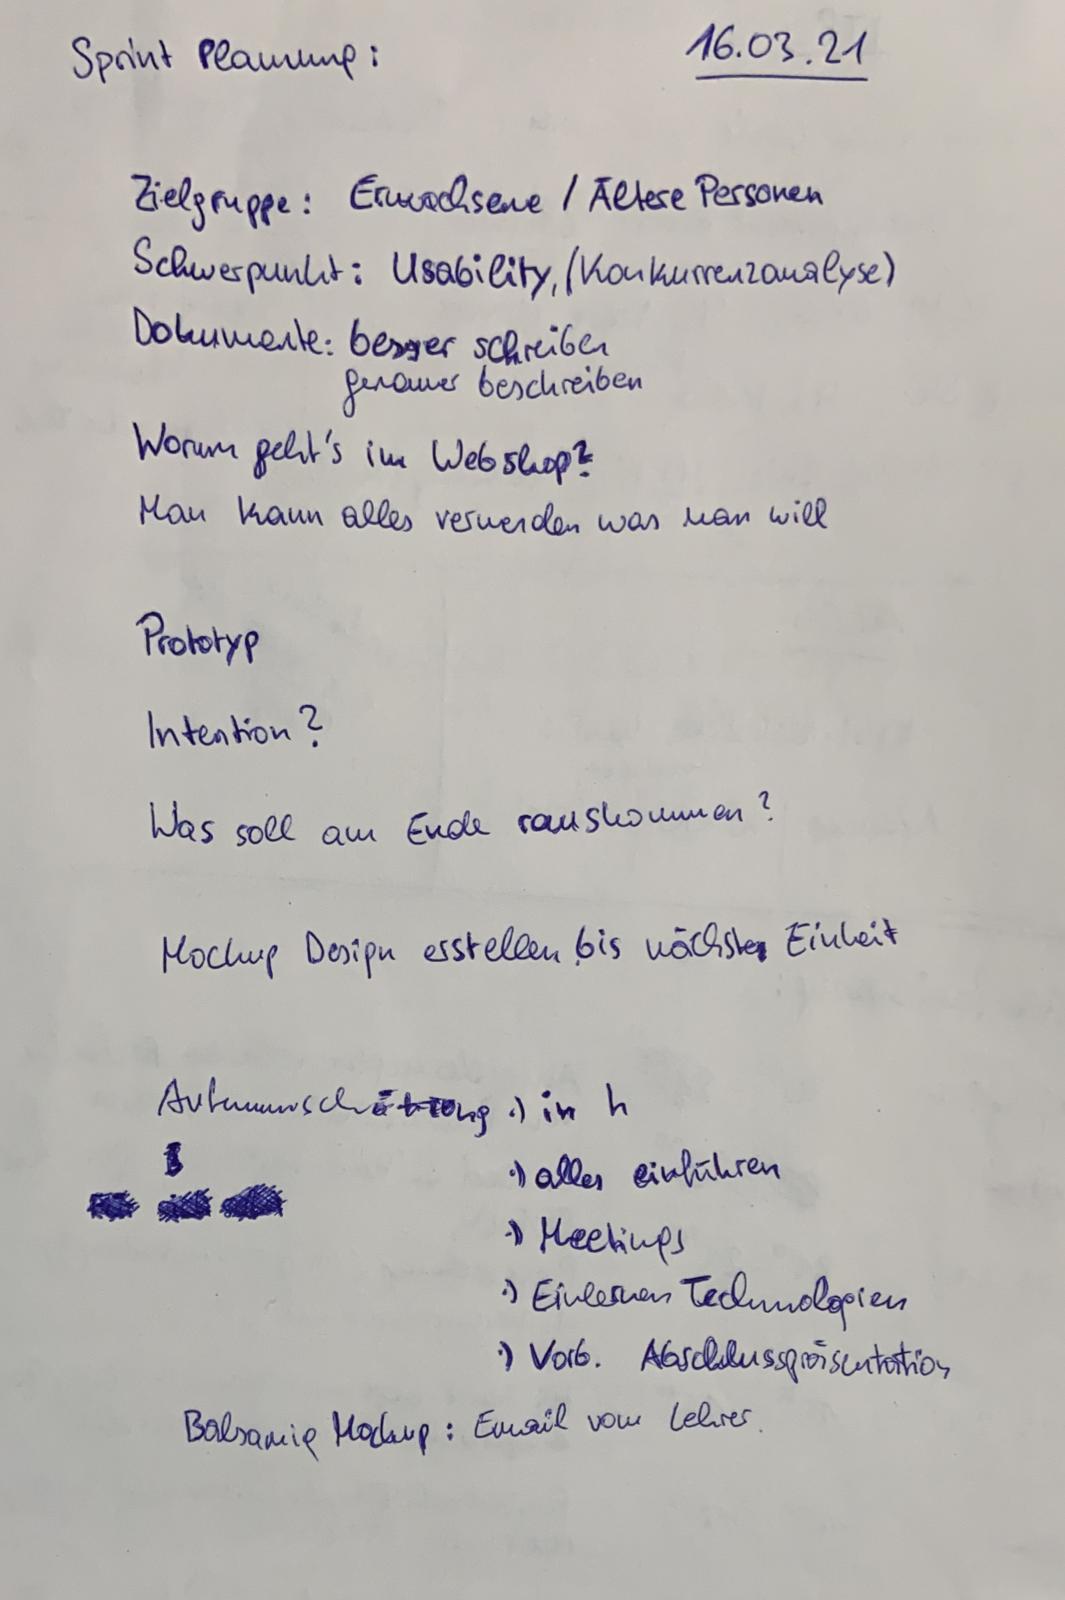 Sprint Planung: 16.03.21
Zielgruppe: Erwachsene / Ältere Personen
Schwerpunkt: Usability, (Konkurrenzanalyse)
Dokumente: besser schreiben
genauer beschreiben
Worum geht's im Webshop?
Man kann alles verwenden was man will
Prototyp
Intention?
Was soll am Ende rauskommen?
Mockup Design erstellen bis nächste Einheit
:) in h
:) alles einführen
:) Meetings
:) Einlernen Technologien
:) Vorb. Abschlusspräsentation
Balsamiq Mockup: Email vom Lehrer.